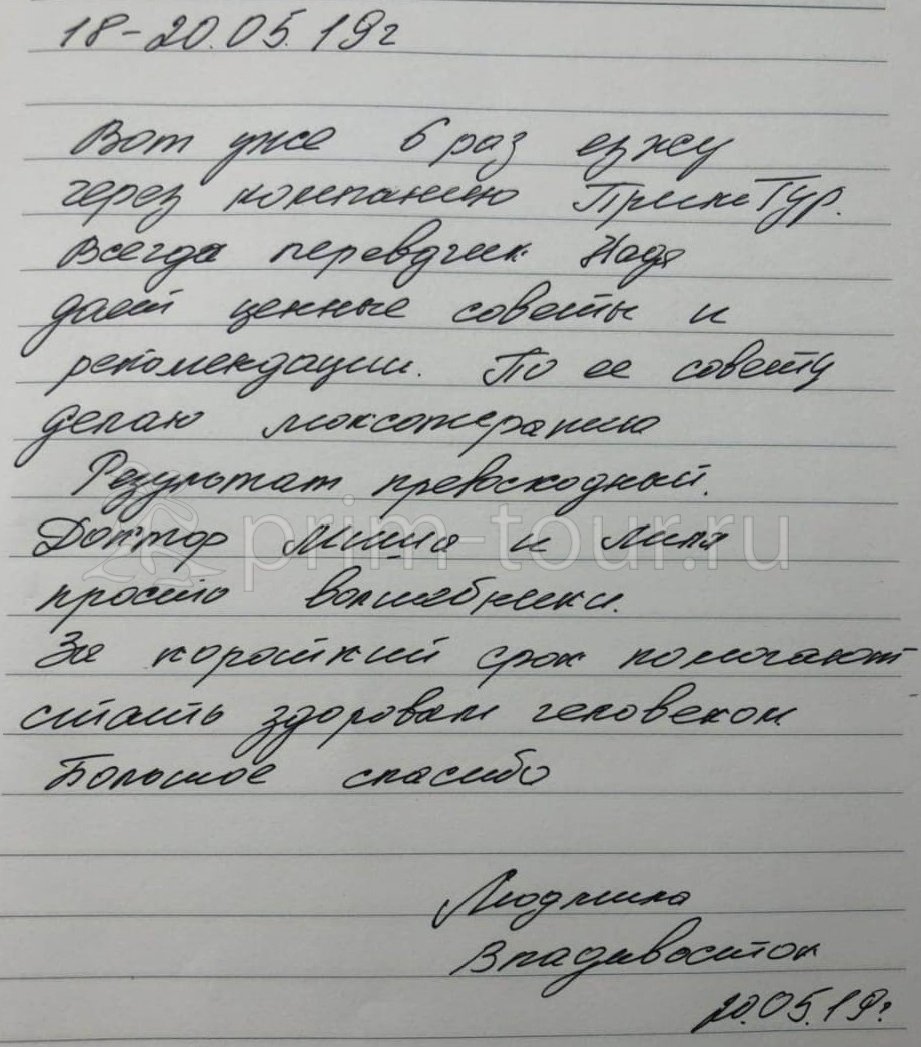 18-20.05.19г
Вот уже 6 раз езжу
через компанию ПримТур.
Всегда перевдчик Надя
дает ценные советы и
рекомендации. По ее совету
делаю моксотерапию
Результат превосходный.
Доктор Миша и Лиля
просто волшебники.
За короткий срок помогают
стать здоровам человеком
Большое спасибо
Людмила
Владивосток
20.05.19г.
prim-tour.ru